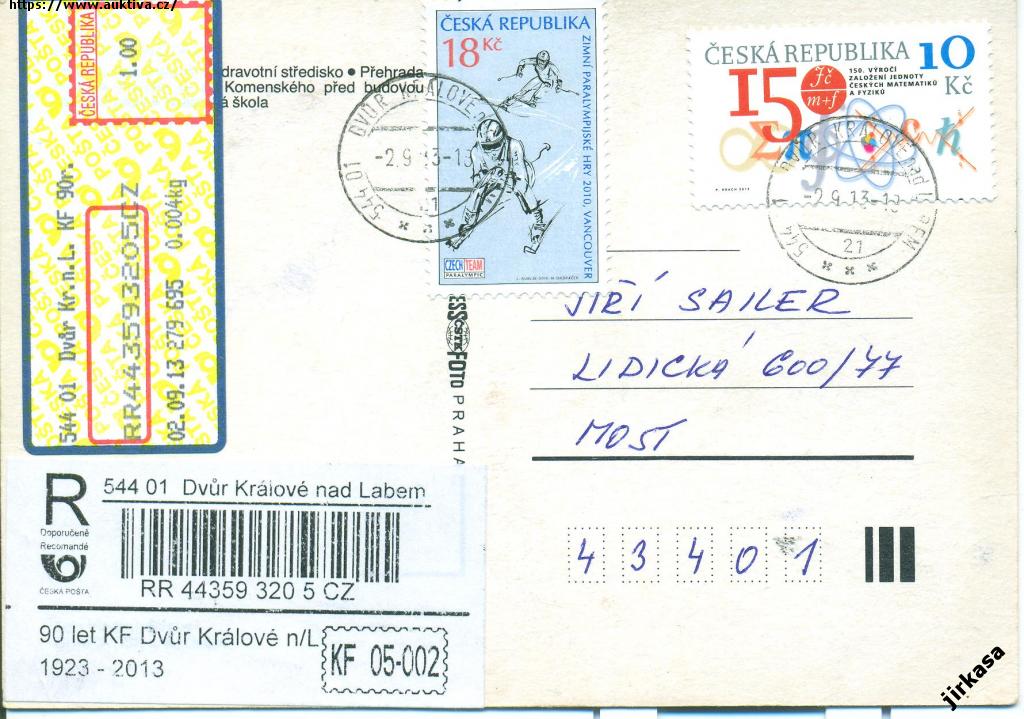 https://www.auktiva.cz/
ČESKÁ REPUBLIKA
1.00
544 01 Dvůr Kr.n.L. KF 90r.
RR443593205CZ
02.09.13 279 695 0.004kg
dravotní středisko • Přehrada
Komenského před budovou
á škola
ČESKÁ REPUBLIKA
18 Kč
ZIMNÍ PARALYMPIJSKÉ HRY 2010, VANCOUVER
CZECH TEAM
PARALYMPIC
544 01 DVŮR KRÁLOVÉ
-2.9.13-13
21
ČESKÁ REPUBLIKA 10 Kč
150
Jč
m+f
150. VÝROČÍ
ZALOŽENÍ JEDNOTY
ČESKÝCH MATEMATIKŮ
A FYZIKŮ
544 DVŮR KRÁLOVÉ nad LABEM
-2.9.13-13
21
ČSTK
FOTO PRAHA
JIŘÍ SAILER
LIDICKÁ 600/77
MOST
43401
R
Doporučeně
Recomandé
ČESKÁ POŠTA
544 01 Dvůr Králové nad Labem
RR 44359 320 5 CZ
90 let KF Dvůr Králové n/L
1923 - 2013
KF 05-002
jirkasa